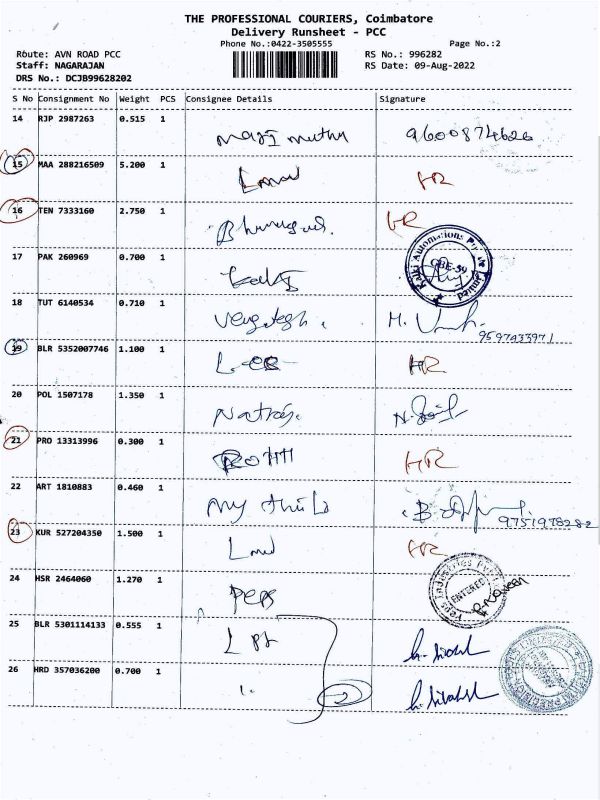 THE PROFESSIONAL COURIERS, Coimbatore
Delivery Runsheet - PCC
Phone No.:0422-3505555
Page No.:2
Route: AVN ROAD PCC
RS No.: 996282
Staff: NAGARAJAN
RS Date: 09-Aug-2022
DRS No.: DCJB99628202
S No Consignment No Weight PCS Consignee Details Signature
14 RJP 2987263 0.515 1 9600874626
15 MAA 288216509 5.200 1 HR
16 TEN 7333160 2.750 1 HR
17 PAK 260969 0.700 1 Kalki Automations CBE-59
18 TUT 6140534 0.710 1 9597433971
19 BLR 5352007746 1.100 1 HR
20 POL 1507178 1.350 1
21 PRO 13313996 0.300 1 HR
22 ART 1810883 0.460 1 9751978282
23 KUR 527204350 1.500 1 HR
24 HSR 2464060 1.270 1 Peps ENTERED
25 BLR 5301114133 0.555 1
26 HRD 357036200 0.700 1 2